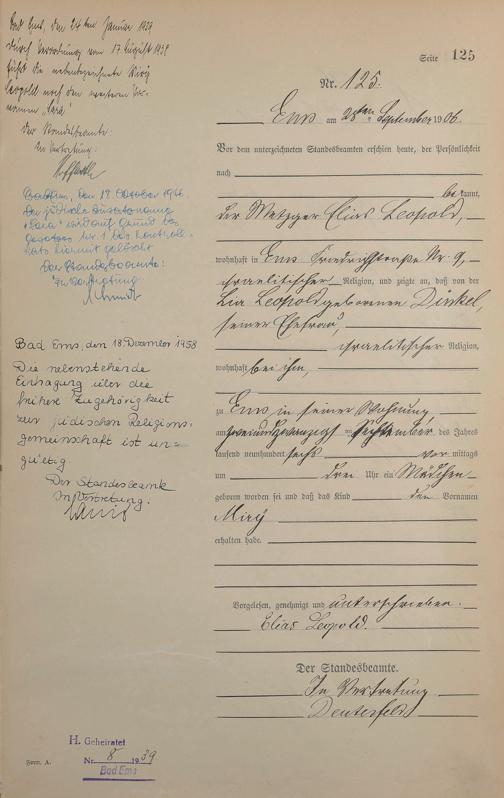 Bad Ems, den 24ten Januar 1939
durch Verordnung vom 17 August 1938
führt die nebenbezeichnete Mirÿ
Leopold noch den weiteren Vor-
namen „Sara“
Der Standesbeamte.
In Vertretung:
Bad Ems, den 18. Oktober 1946.
Der jüdische Zusatzname
„Sara“ wird auf Grund des
Gesetzes Nr 1 des Kontroll-
rats hiermit gelöscht
Der Standesbeamte:
In Vertretung
Bad Ems, den 18. Dezember 1958
Die nebenstehende
Eintragung über die
frühere Zugehörigkeit
zur jüdischen Religions-
gemeinschaft ist un-
gültig
Der Standesbeamte
In Vertretung.
Seite 125
Nr. 125.
Ems am 28ten September 1906.
Vor dem unterzeichneten Standesbeamten erschien heute, der Persönlichkeit
nach
bekannt,
der Metzger Elias Leopold,
wohnhaft in Ems Friedrichstraße Nr. 9,
israelitischer Religion, und zeigte an, daß von der
Lia Leopold geborenen Dinkel,
seiner Ehefrau,
israelitischer Religion,
wohnhaft bei ihm,
zu Ems in seiner Wohnung,
am zweiundzwanzigsten September des Jahres
tausend neunhundert sechs vor mittags
um drei Uhr ein Mädchen
geboren worden sei und daß das Kind den Vornamen
Mirÿ
erhalten habe.
Vorgelesen, genehmigt und unterschrieben.
Elias Leopold.
Der Standesbeamte.
In Vertretung
H. Geheiratet
Nr. 8 1939
Bad Ems
Form. A.